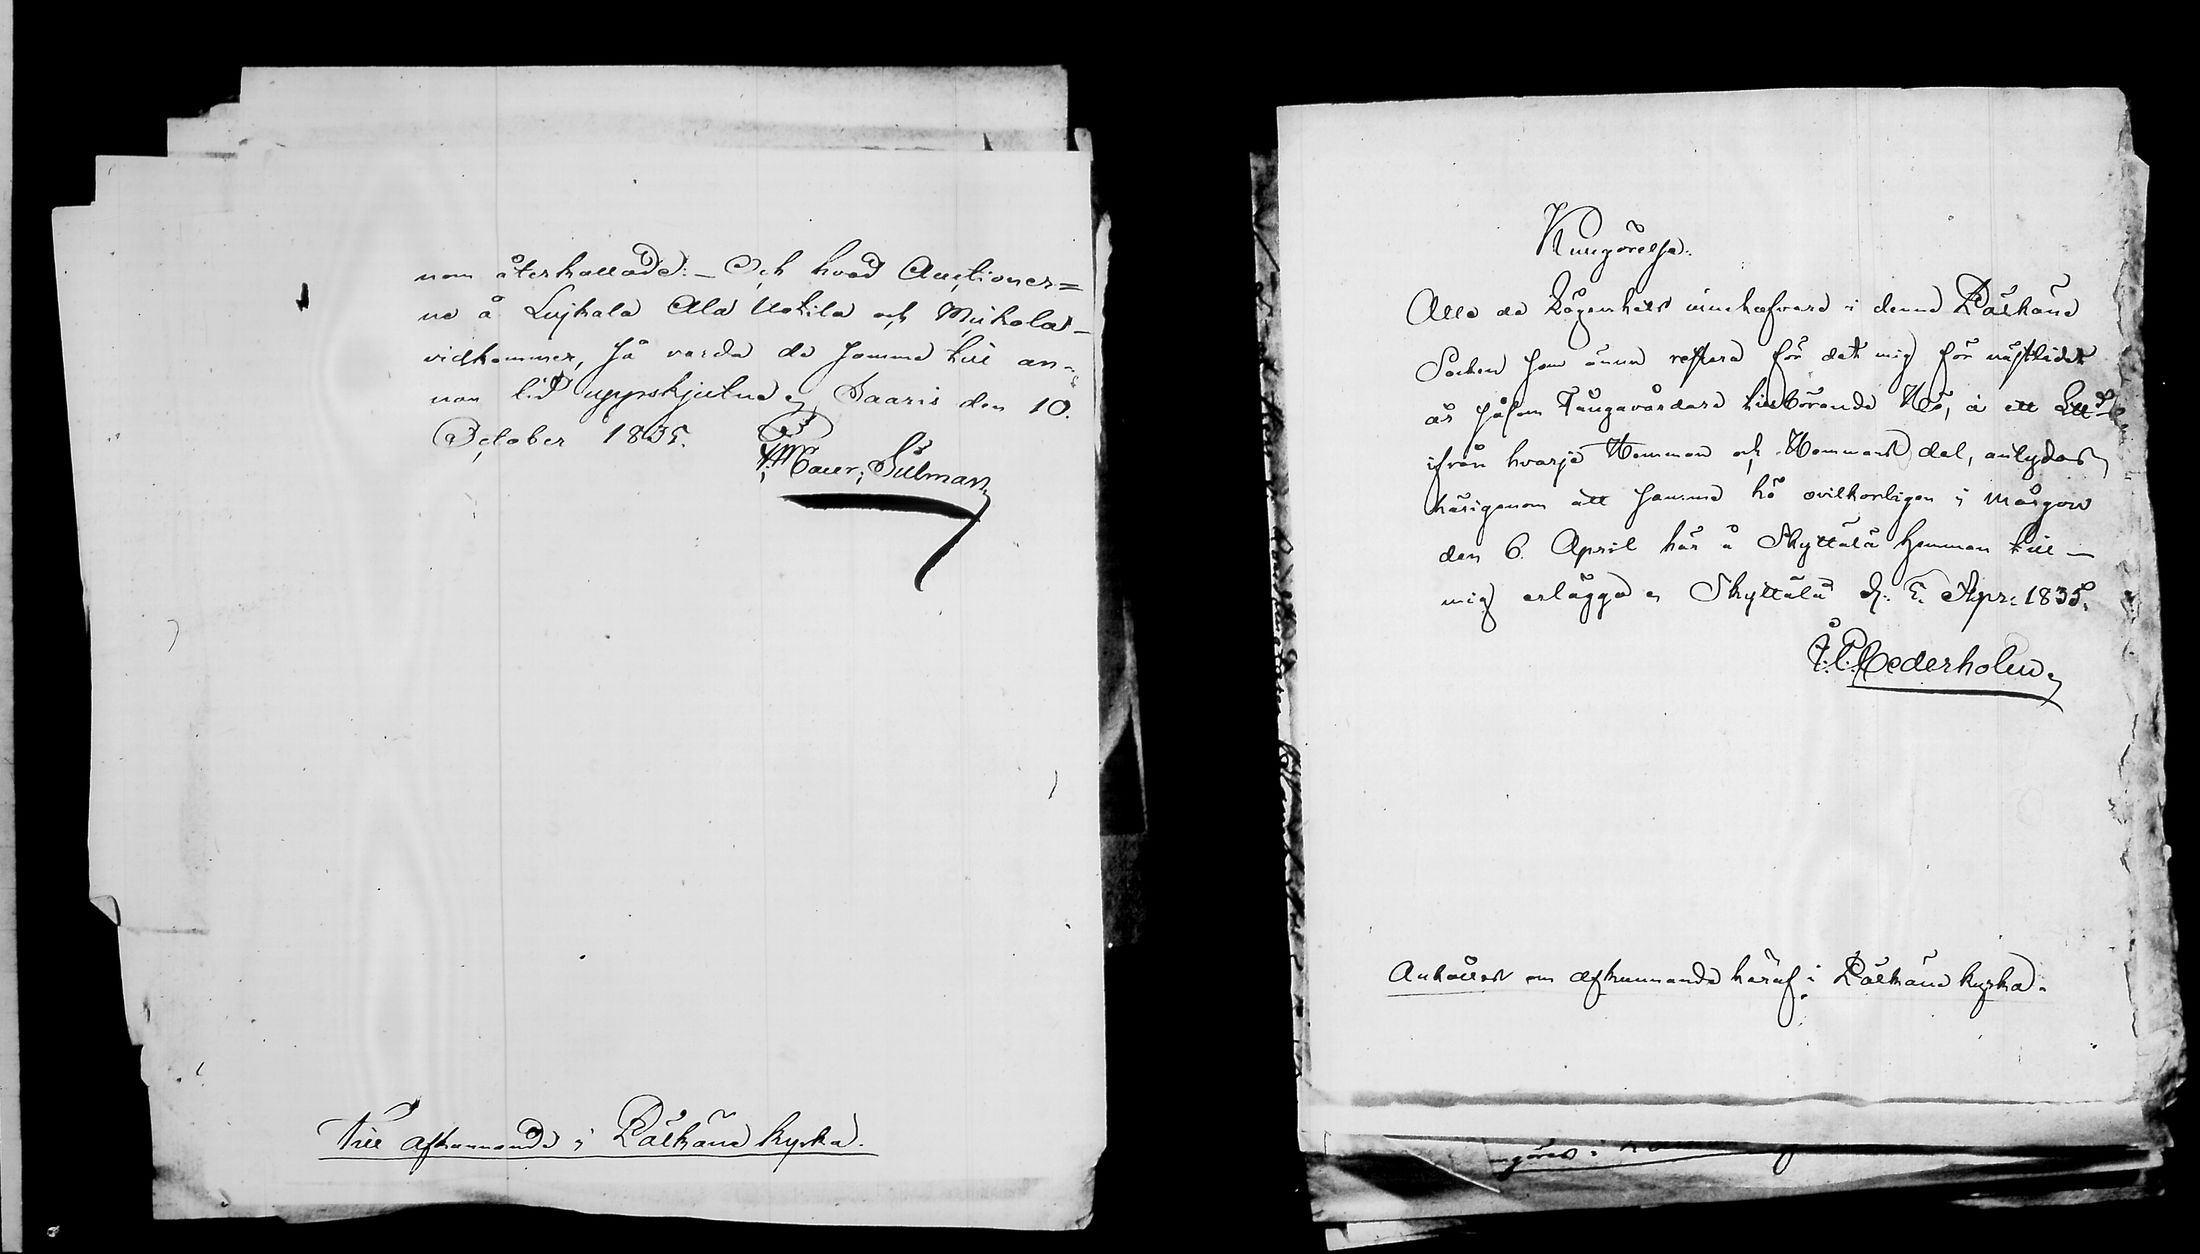 nom återkallade: – Och hvad Auctioner=
ne å Lujkala Ala Uotila och Mickola –
vidkommer, så varda de samma till an-
nan tid uppskjutne, Saaris den 10.
October 1835.
Silman
Till afkunnande i Pälkäne kyrka.
Kungörelse.
Alla de Lägenhets innehafvare i denne Pälkäne
Socken som ännu restera för det mig för nästlidet
år såsom Fångavårdare tillkörande Hö, à ett
ifrån hvarje Hemman och Hemmans del, antydas
härigenom att samma hö ovilkorligen i mårgon
den 6. April här å Skyttälä Hemman till –
mig erlägga, Skyttälä d: 5. Apr: 1835.
Cederholm
Anhålles om afkunnande häraf i Pälkäne kyrka.